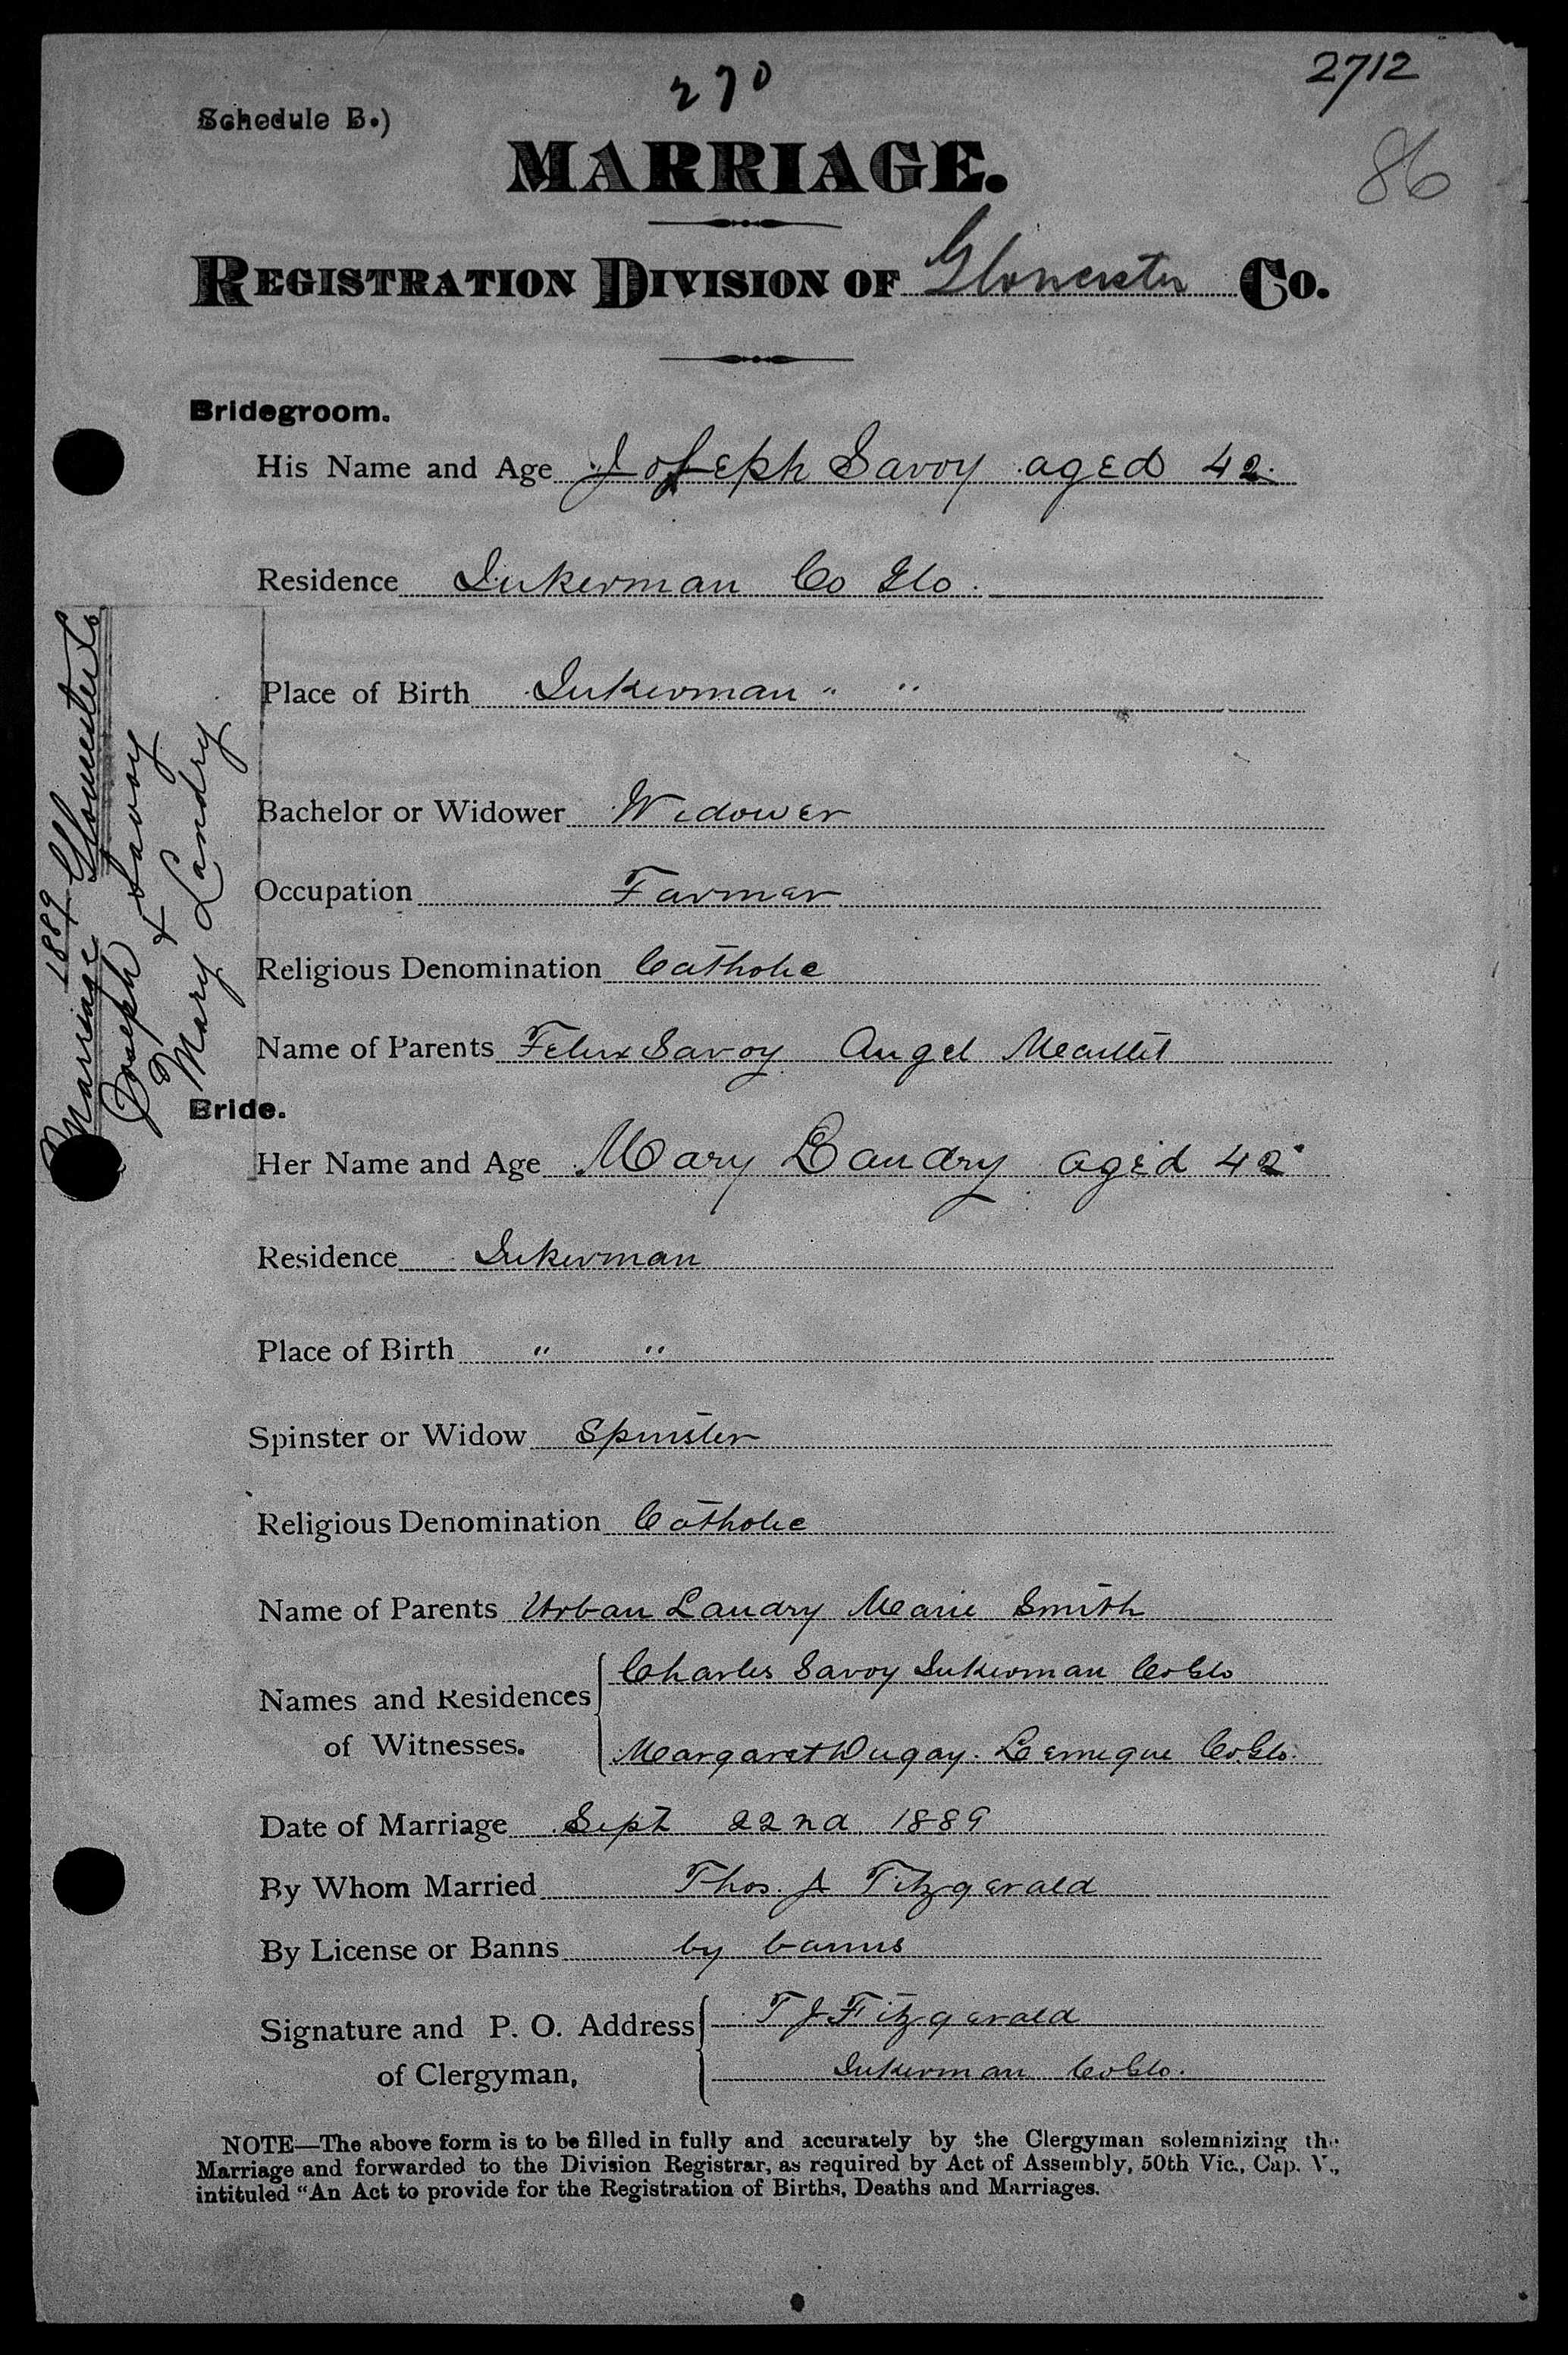 270
2712
Schedule B.)
86
MARRIAGE.
REGISTRATION DIVISION OF Gloucester Co.
Bridegroom.
His Name and Age Joseph Savoy aged 42.
Residence Inkerman Co Glo.
Place of Birth Inkerman " "
Bachelor or Widower Widower
Occupation Farmer
Religious Denomination Catholic
Name of Parents Felix Savoy Angel
Bride.
Her Name and Age Mary Landry aged 42
Residence Inkerman
Place of Birth " "
Spinster or Widow Spinster
Religious Denomination Catholic
Name of Parents Urban Landry Marie Smith
Names and Residences of Witnesses.
Charles Savoy Inkerman Co Glo
Margaret Dugay. Lameque Co. Glo.
Date of Marriage Sept 22nd 1889
By Whom Married Thos. J Fitzgerald
By License or Banns by banns
Signature and P. O. Address of Clergyman,
T J Fitzgerald
Inkerman Co Glo.
NOTE—The above form is to be filled in fully and accurately by the Clergyman solemnizing the
Marriage and forwarded to the Division Registrar, as required by Act of Assembly, 50th Vic., Cap. V.,
intituled "An Act to provide for the Registration of Births, Deaths and Marriages.
1889 Gloucester Co
Marriage
Joseph Savoy
+
Mary Landry